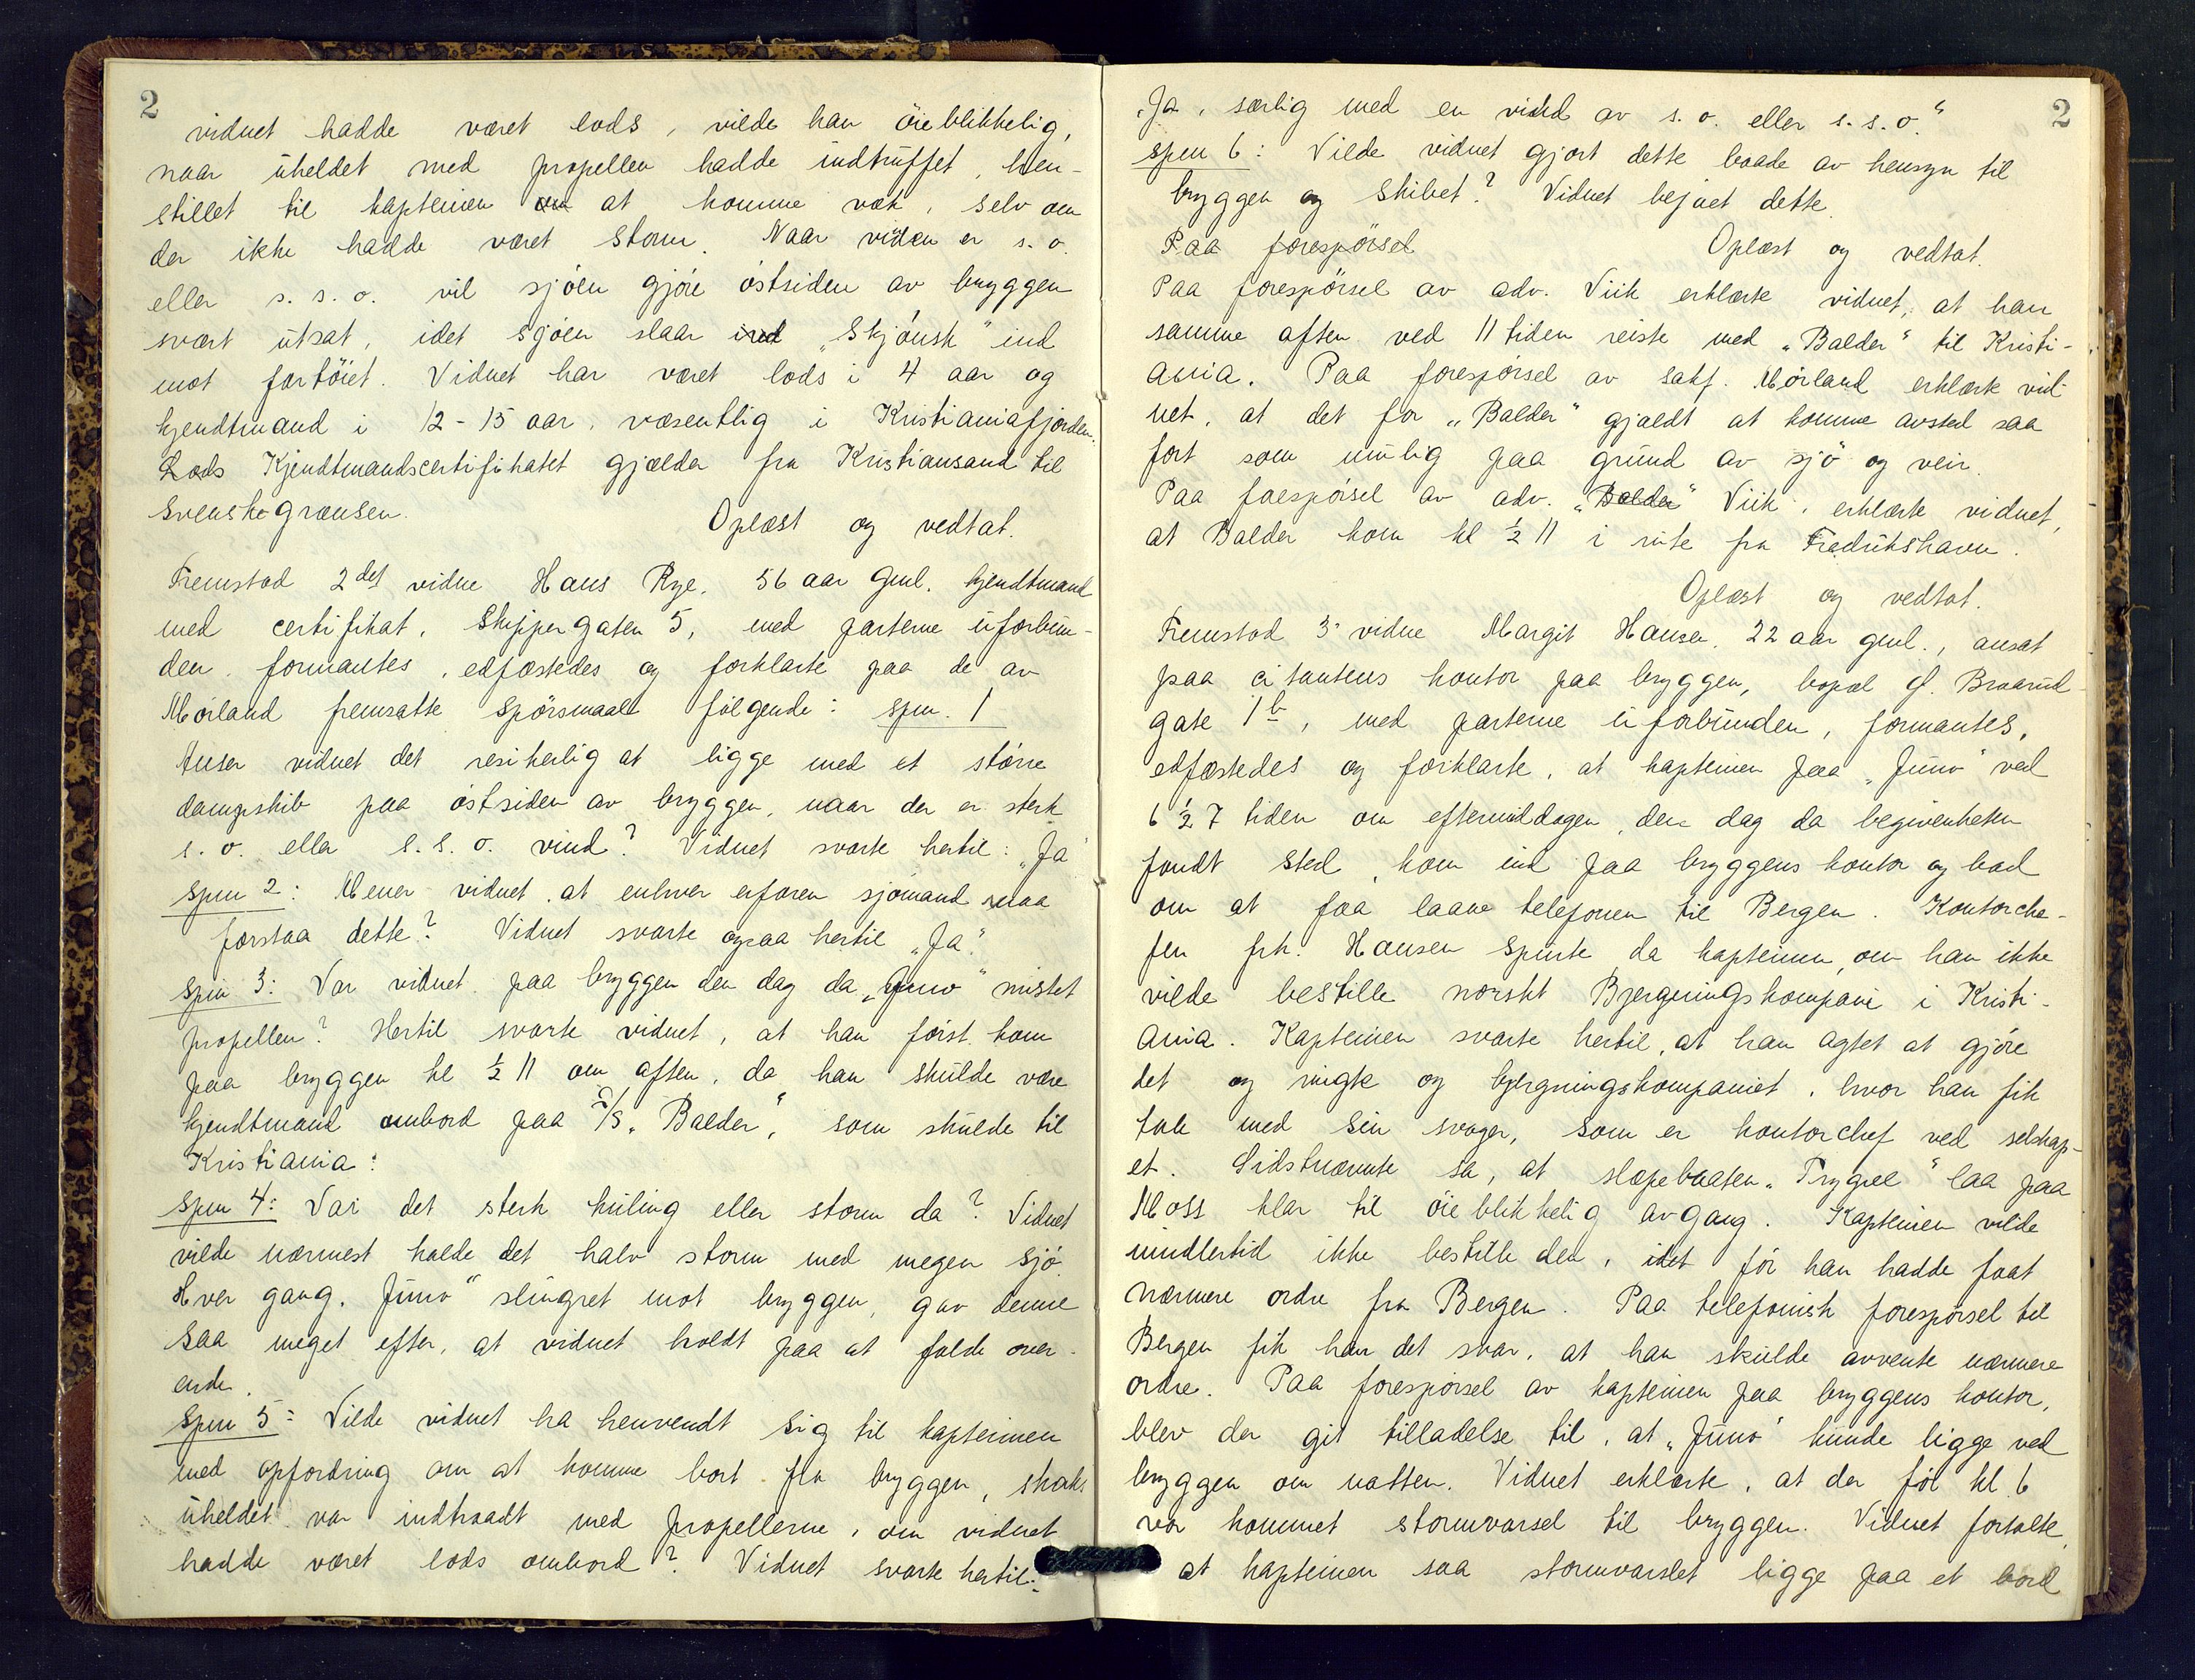 2
vidnet hadde været lods, vilde han öieblikkelig,
naar uheldet med propellen hadde indtruffet, hen-
stillet til kapteinen om at komme væk, selv om
der ikke hadde været storm. Naar vinden er s. o.
eller s. s. o. vil sjöen gjöre östsiden av bryggen
svært utsat, idet sjöen slaar ind „Skjönsk" ind
mot fartöiet. Vidnet har været lods i 4 aar og
kjendtmand i 12-15 aar, væsentlig i Kristianiafjorden.
Lods Kjendtmandscertifikatet gjælder fra Kristiansand til
Svenskegrænsen.
Oplæst og vedtat.
Fremstod 2det vidne Hans Rye, 56 aar gml. kjendtmand
med certifikat, Skippergaten 5, med parterne uforbun-
den, formantes, edfæstedes og forklarte paa de av
Mörland fremsatte spörsmaal fölgende: spm. 1
Anser vidnet det resikerlig at ligge med et större
dampskib paa östsiden av bryggen, naar der er sterk
s. o. eller s. s. o. vind? Vidnet svarte hertil: „Ja"
spm 2: Mener vidnet, at enhver erfaren sjömand maa
forstaa dette? Vidnet svarte ogsaa hertil „Ja."
spm 3: Var vidnet paa bryggen den dag da „Juno" mistet
propellen? Hertil svarte vidnet, at han först kom
paa bryggen kl ½ 11 om aften, da han skulde være
kjendtmand ombord paa S/S „Balder", som skulde til
Kristiania:
spm 4: Var det sterk kuling eller storm da? Vidnet
vilde nærmest holde det halv storm med megen sjö.
Hver gang „Juno" slingret mot bryggen, gav denne
saa meget efter, at vidnet holdt paa at falde over-
ende.
Spm 5: Vilde vidnet ha henvendt sig til kapteinen
med opfordring om at komme bort fra bryggen, straks
uheldet var indtraadt med propellerne, om vidnet
hadde været lods ombord? Vidnet svarte hertil:
2
„Ja, særlig med en vind av s. o. eller s. s. o."
spm 6: Vilde vidnet gjort dette baade av hensyn til
bryggen og skibet? Vidnet bejaet dette.
Paa forespörsel Oplæst og vedtat.
Paa forespörsel av adv. Viik erklærte vidnet, at han
samme aften ved 11 tiden reiste med „Balder" til Kristi-
ania. Paa forespörsel av sakf. Mörland erklærte vid-
net, at det for „Balder" gjaldt at komme avsted saa
fort som mulig paa grund av sjö og veir.
Paa forespörsel av adv. „Balder" Viik, erklærte vidnet,
at Balder kom kl ½ 11 i rute fra Fredrikshavn.
Oplæst og vedtat.
Fremstod 3. vidne Margit Hansen, 22 aar gml., ansat
paa citantens kontor paa bryggen, bopæl Braarud-
gate 1b, med parterne uforbunden, formantes,
edfæstedes og forklarte, at kapteinen paa „Juno" ved
6 ½ 7 tiden om eftermiddagen, den dag da begivenheten
fandt sted, kom ind paa bryggens kontor og bad
om at faa laane telefonen til Bergen. Kontorche-
fen frk. Hansen spurte da kapteinen, om han ikke
vilde bestille norskt Bjergningskompani i Kristi-
ania. Kapteinen svarte hertil, at han agtet at gjöre
det og ringte og bjergningskompaniet, hvor han fik
tale med sin svoger, som er kontorchef ved selskap-
et. Sidstnævnte sa, at slæpebaaten „Trygve" laa paa
Moss klar til öieblikkelig avgang. Kapteinen vilde
imidlertid ikke bestille den, idet för han hadde faat
nærmere ordre fra Bergen. Paa telefonisk forespörsel til
Bergen fik han det svar, at han skulde avvente nærmere
ordre. Paa forespörsel av kapteinen paa bryggens kontor,
blev der git tilladelse til, at „Juno" kunde ligge ved
bryggen om natten. Vidnet erklærte, at der för kl. 6
var kommet stormvarsel til bryggen. Vidnet fortalte,
at kapteinen saa stormvarslet ligge paa et bord